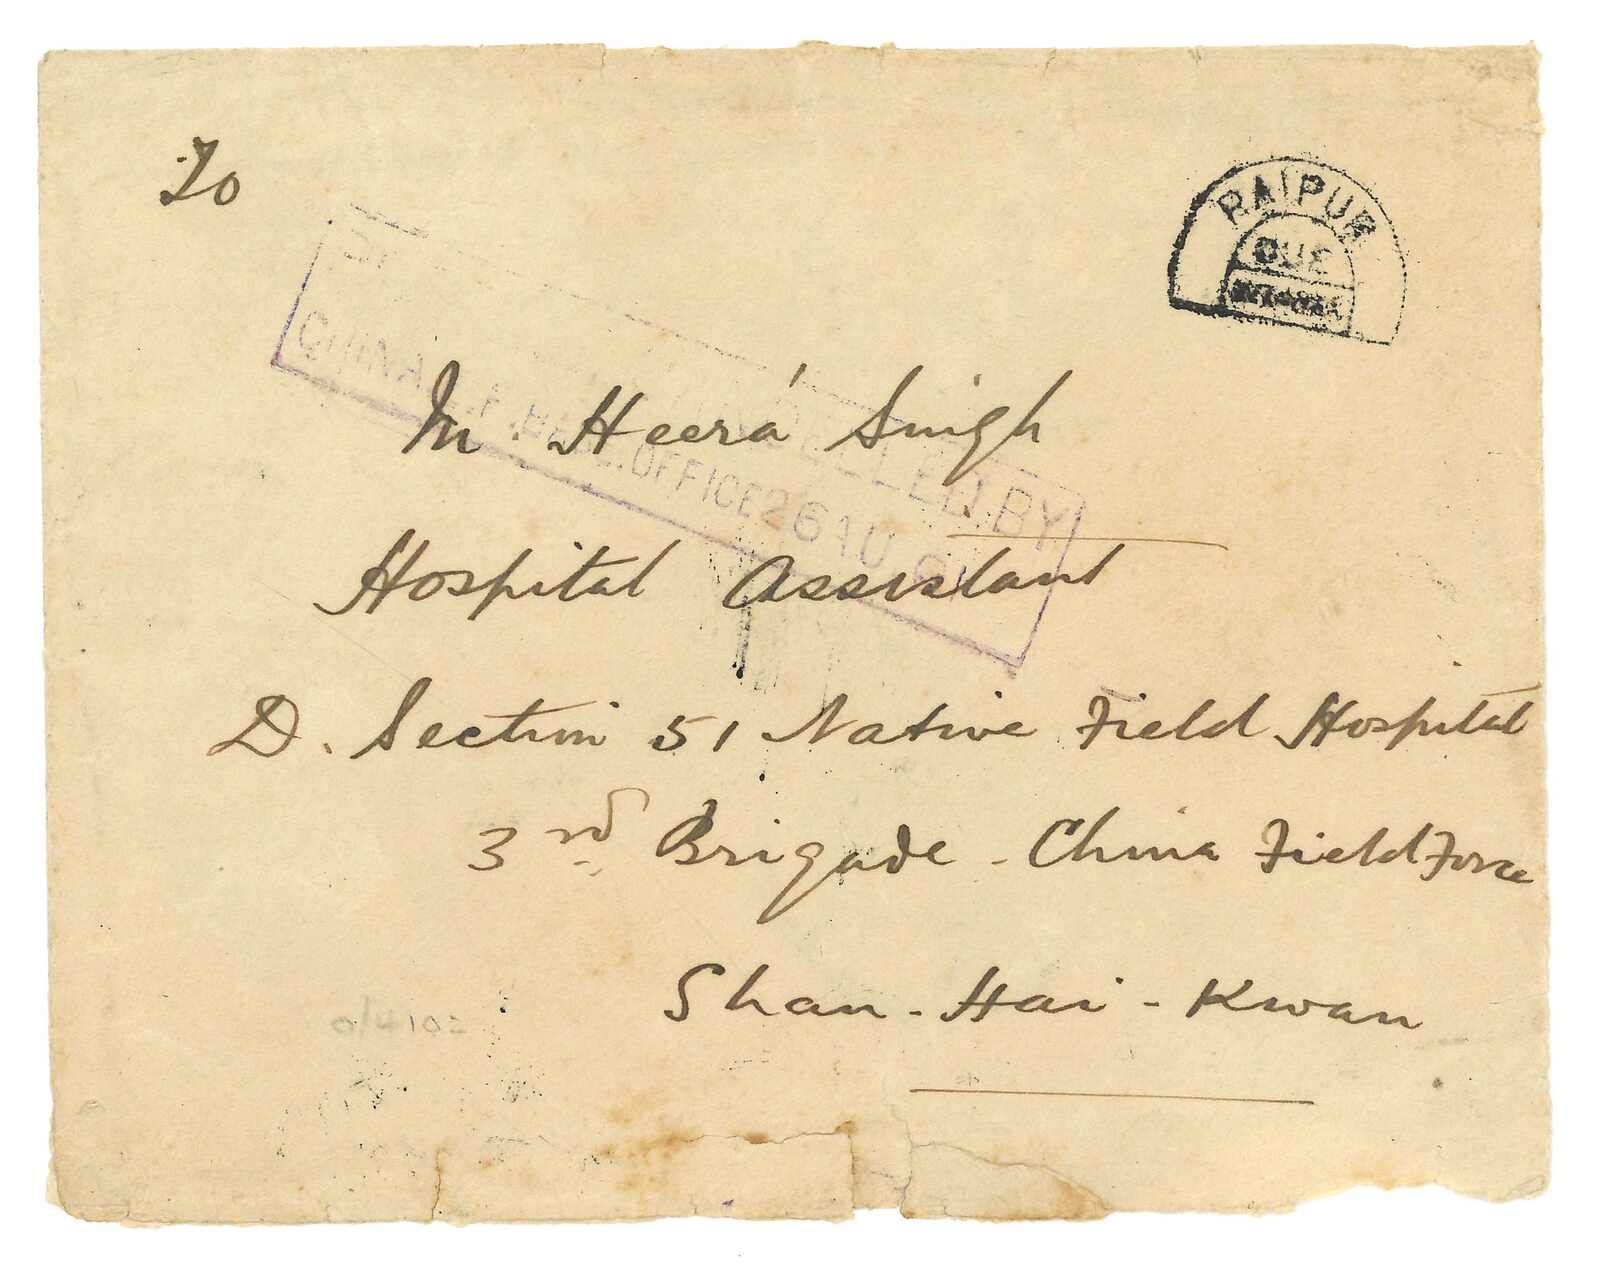 To
RAIPUR
DUE
CHINA
OFFICE 261
BY
Mr Heerá Singh
Hospital Assistant
D. Section 51 Native Field Hospital
3rd Brigade - China Field Force
Shan-Hai-Kwan